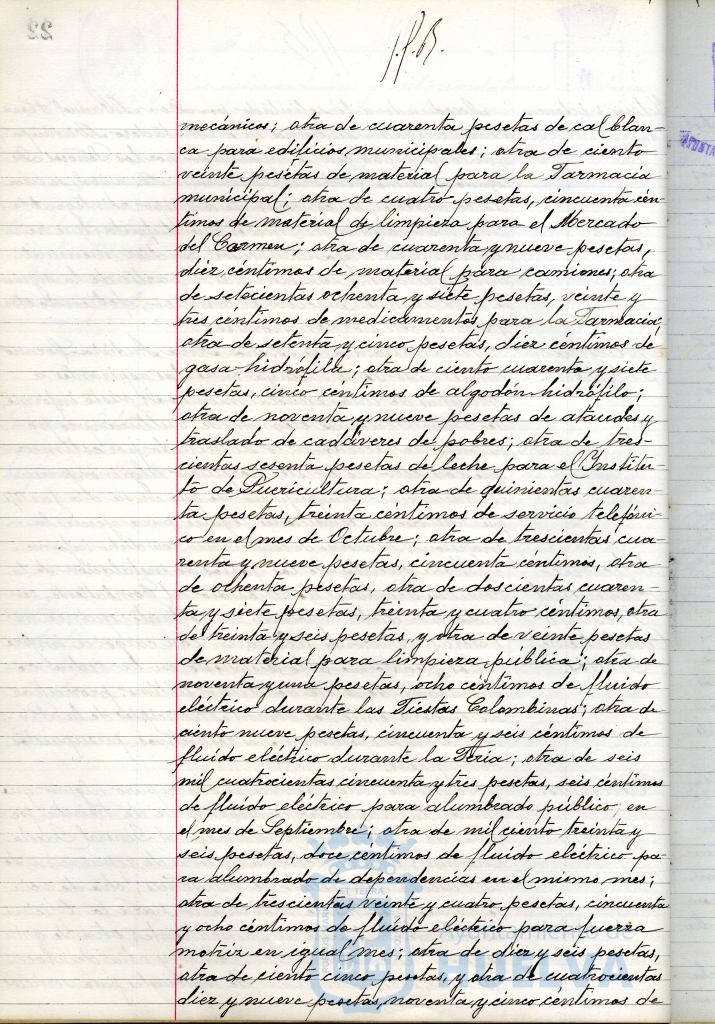 mecánicos; otra de cuarenta pesetas de cal blan-
ca para edificios municipales; otra de ciento
veinte pesetas de material para la Farmacia
municipal; otra de cuatro pesetas, cincuenta cén-
timos de material de limpieza para el Mercado
del Carmen; otra de cuarenta y nueve pesetas,
diez céntimos de material para camiones; otra
de setecientas ochenta y siete pesetas, veinte y
tres céntimos de medicamentos para la Farmacia;
otra de setenta y cinco pesetas, diez céntimos de
gasa hidrófila; otra de ciento cuarenta y siete
pesetas, cinco céntimos de algodón hidrófilo;
otra de noventa y nueve pesetas de ataudes y
traslado de cadáveres de pobres; otra de tres-
cientas sesenta pesetas de leche para el Institu-
to de Puericultura; otra de quinientas cuaren-
ta pesetas, treinta céntimos de servicio telefóni-
co en el mes de Octubre; otra de trescientas cua-
renta y nueve pesetas, cincuenta céntimos, otra
de ochenta pesetas, otra de doscientas cuaren-
ta y siete pesetas, treinta y cuatro céntimos, otra
de treinta y seis pesetas, y otra de veinte pesetas
de material para limpieza pública; otra de
noventa y una pesetas, ocho céntimos de fluido
eléctrico durante las Fiestas Colombinas; otra de
ciento nueve pesetas, cincuenta y seis céntimos de
fluído eléctrico durante la Feria; otra de seis
mil cuatrocientas cincuenta y tres pesetas, seis céntimos
de fluido eléctrico para alumbrado público, en
el mes de Septiembre; otra de mil ciento treinta y
seis pesetas, doce céntimos de fluído eléctrico pa-
ra alumbrado de dependencias en el mismo mes;
otra de trescientas veinte y cuatro pesetas, cincuenta
y ocho céntimos de fluído eléctrico para fuerza
motriz en igual mes; otra de diez y seis pesetas,
otra de ciento cinco pesetas, y otra de cuatrocientas
diez y nueve pesetas, noventa y cinco céntimos de